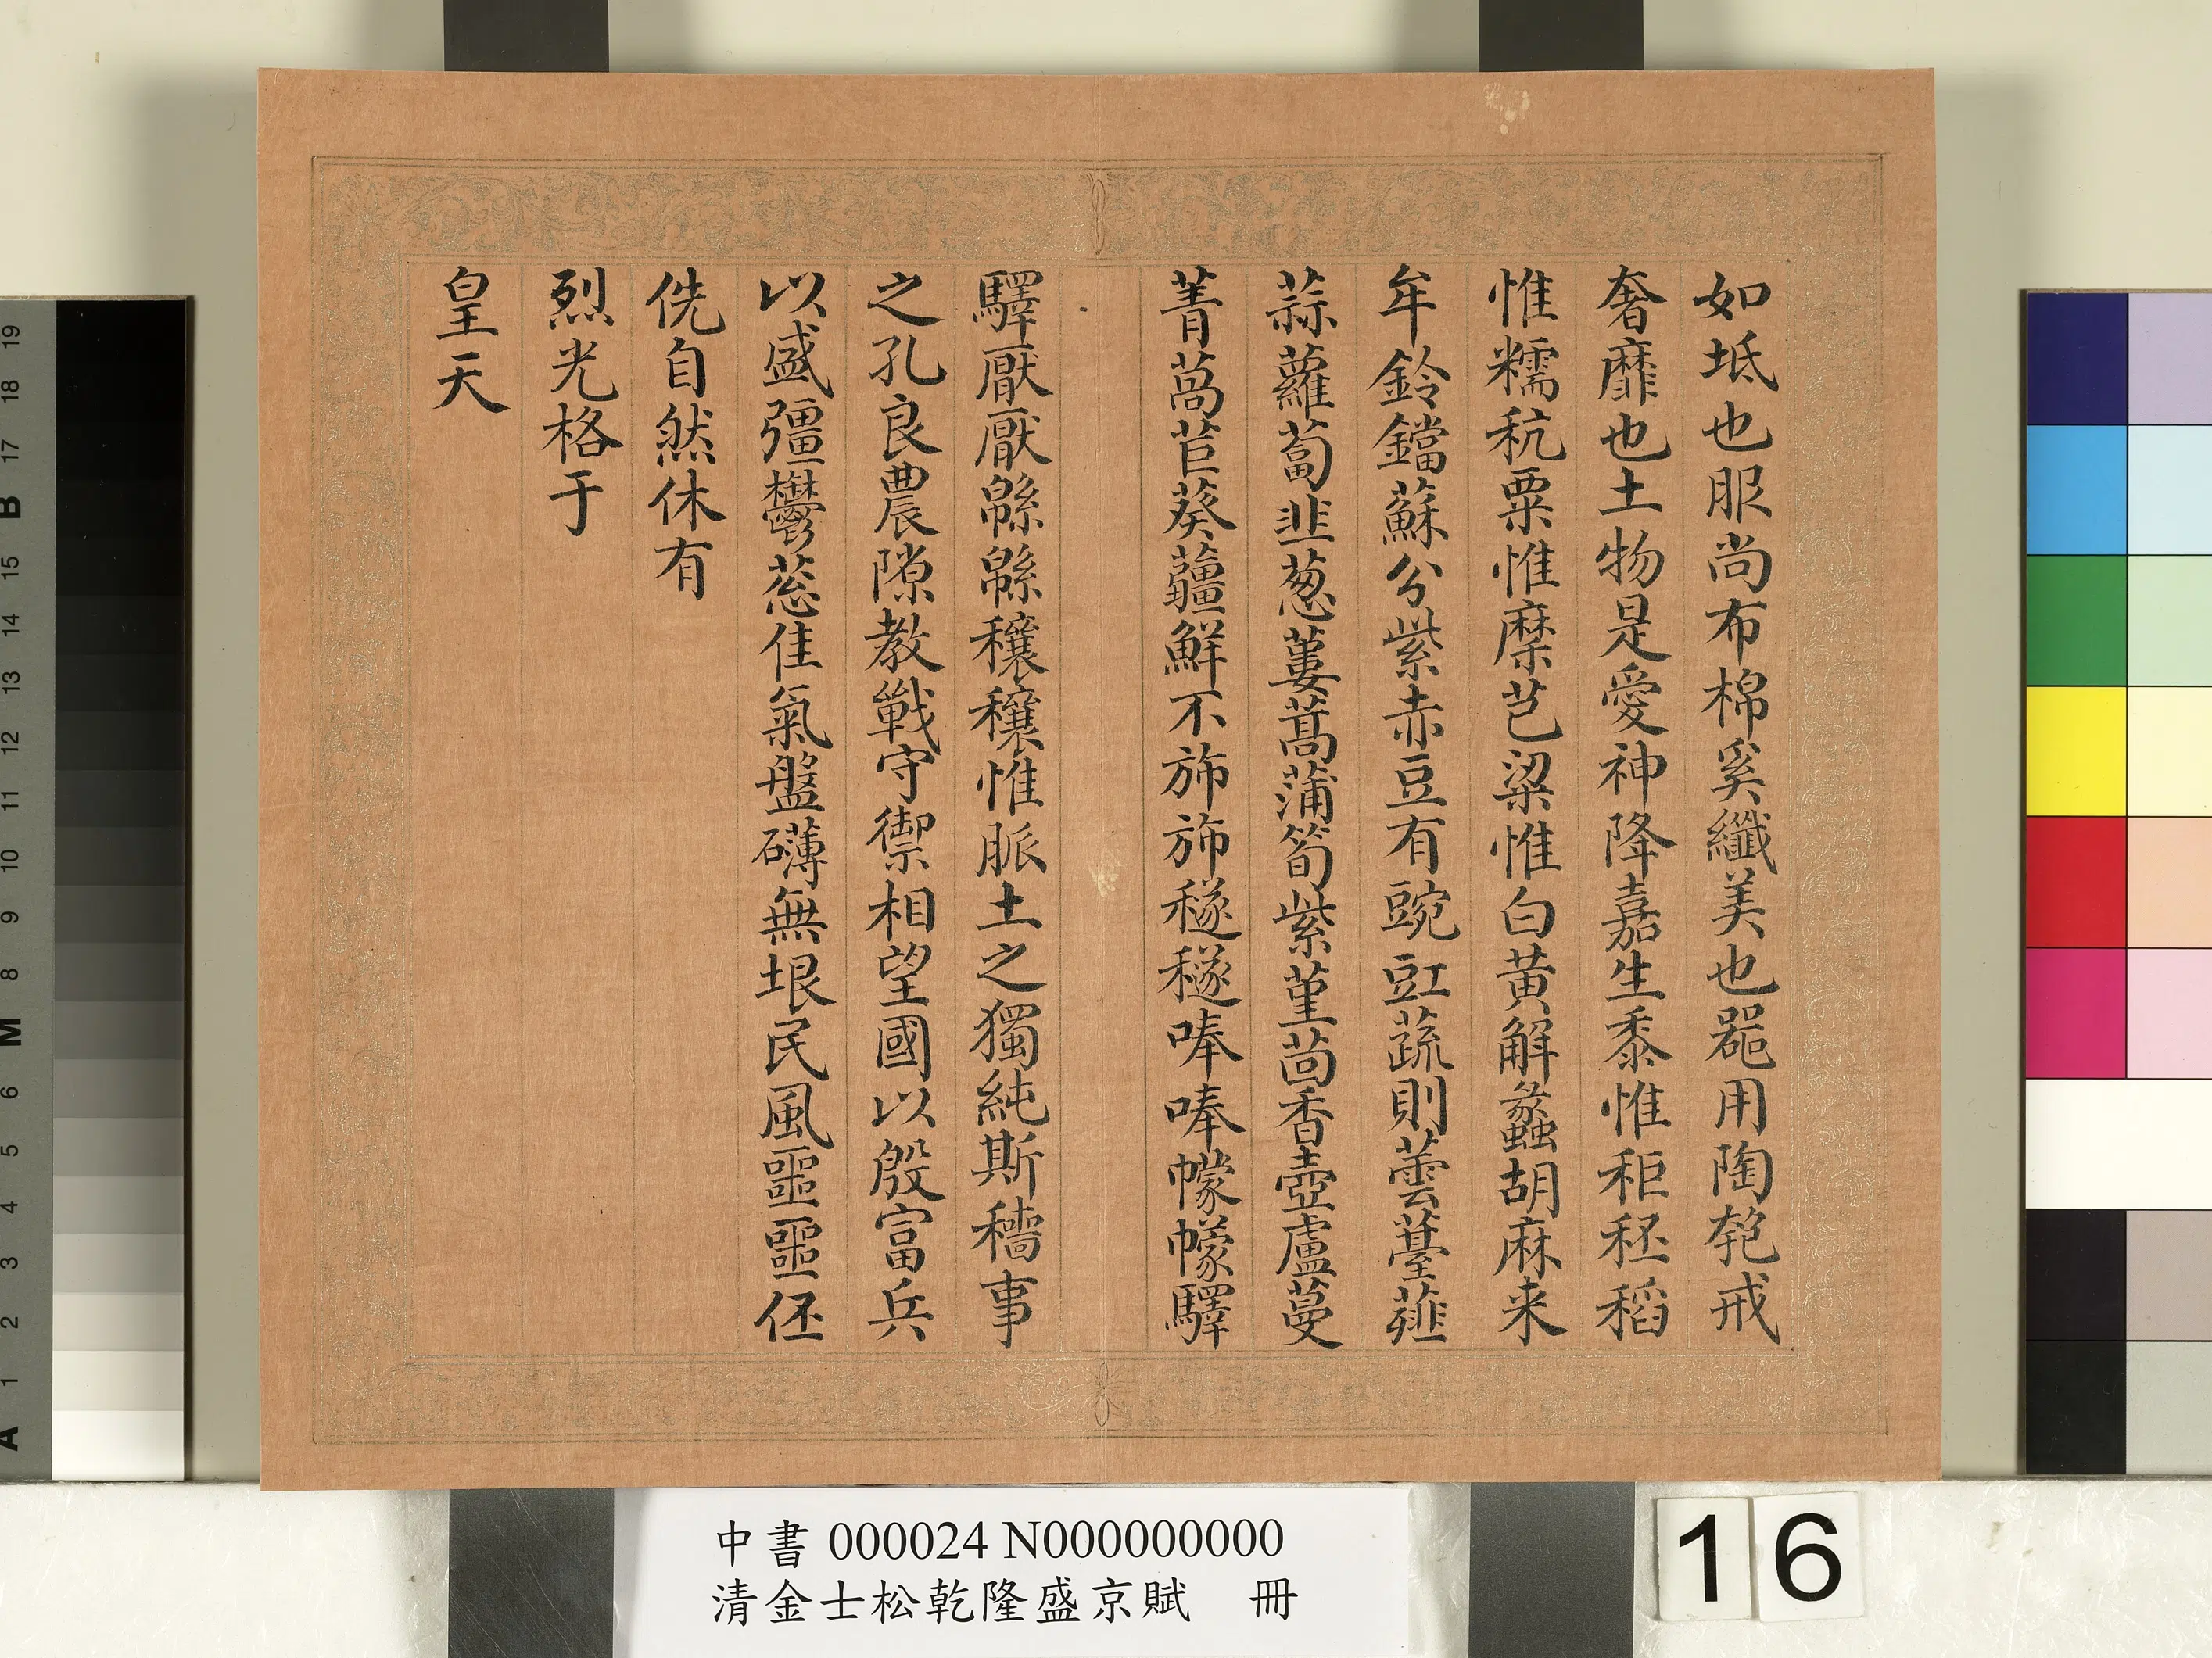 如坻也服尚布棉奚纖美也器用陶匏戒
奢靡也土物是愛神降嘉生黍惟秬秠稻
惟糯秔粟惟穈芑粱惟白黃解蠡胡麻来
牟鈴鐺蘇分紫赤豆有豌豇蔬則蕓薹薤
蒜蘿蔔韭葱蔞蒿蒲筍紫堇茴香壺盧蔓
菁萵苣葵薑鮮不斾斾穟穟唪唪幪幪驛
驛厭厭緜緜穰穰惟脈土之獨純斯穡事
之孔良農隙教戰守禦相望國以殷富兵
以盛彊鬱葱佳氣盤礴無垠民風噩噩伾
侁自然休有
烈光格于
皇天
中書 000024 N000000000
清金士松乾隆盛京賦 冊
16
19
18
17
B
15
14
13
12
11
10
9
8
M
6
5
4
3
2
1
A